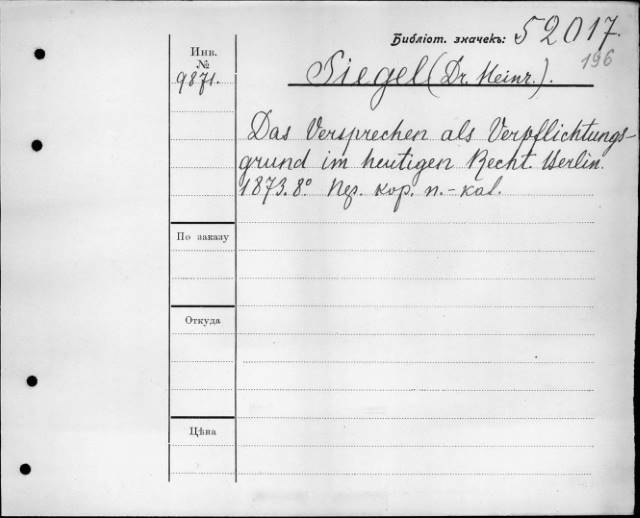 Библіот. значекъ: 52017.
196
Инв.
№
9871.
Siegel (Dr. Heinr.).
Das Versprechen als Verpflichtungs-
grund im heutigen Recht. Berlin.
1873. 8º
кор. п.-кал.
По заказу
Откуда
Цѣна